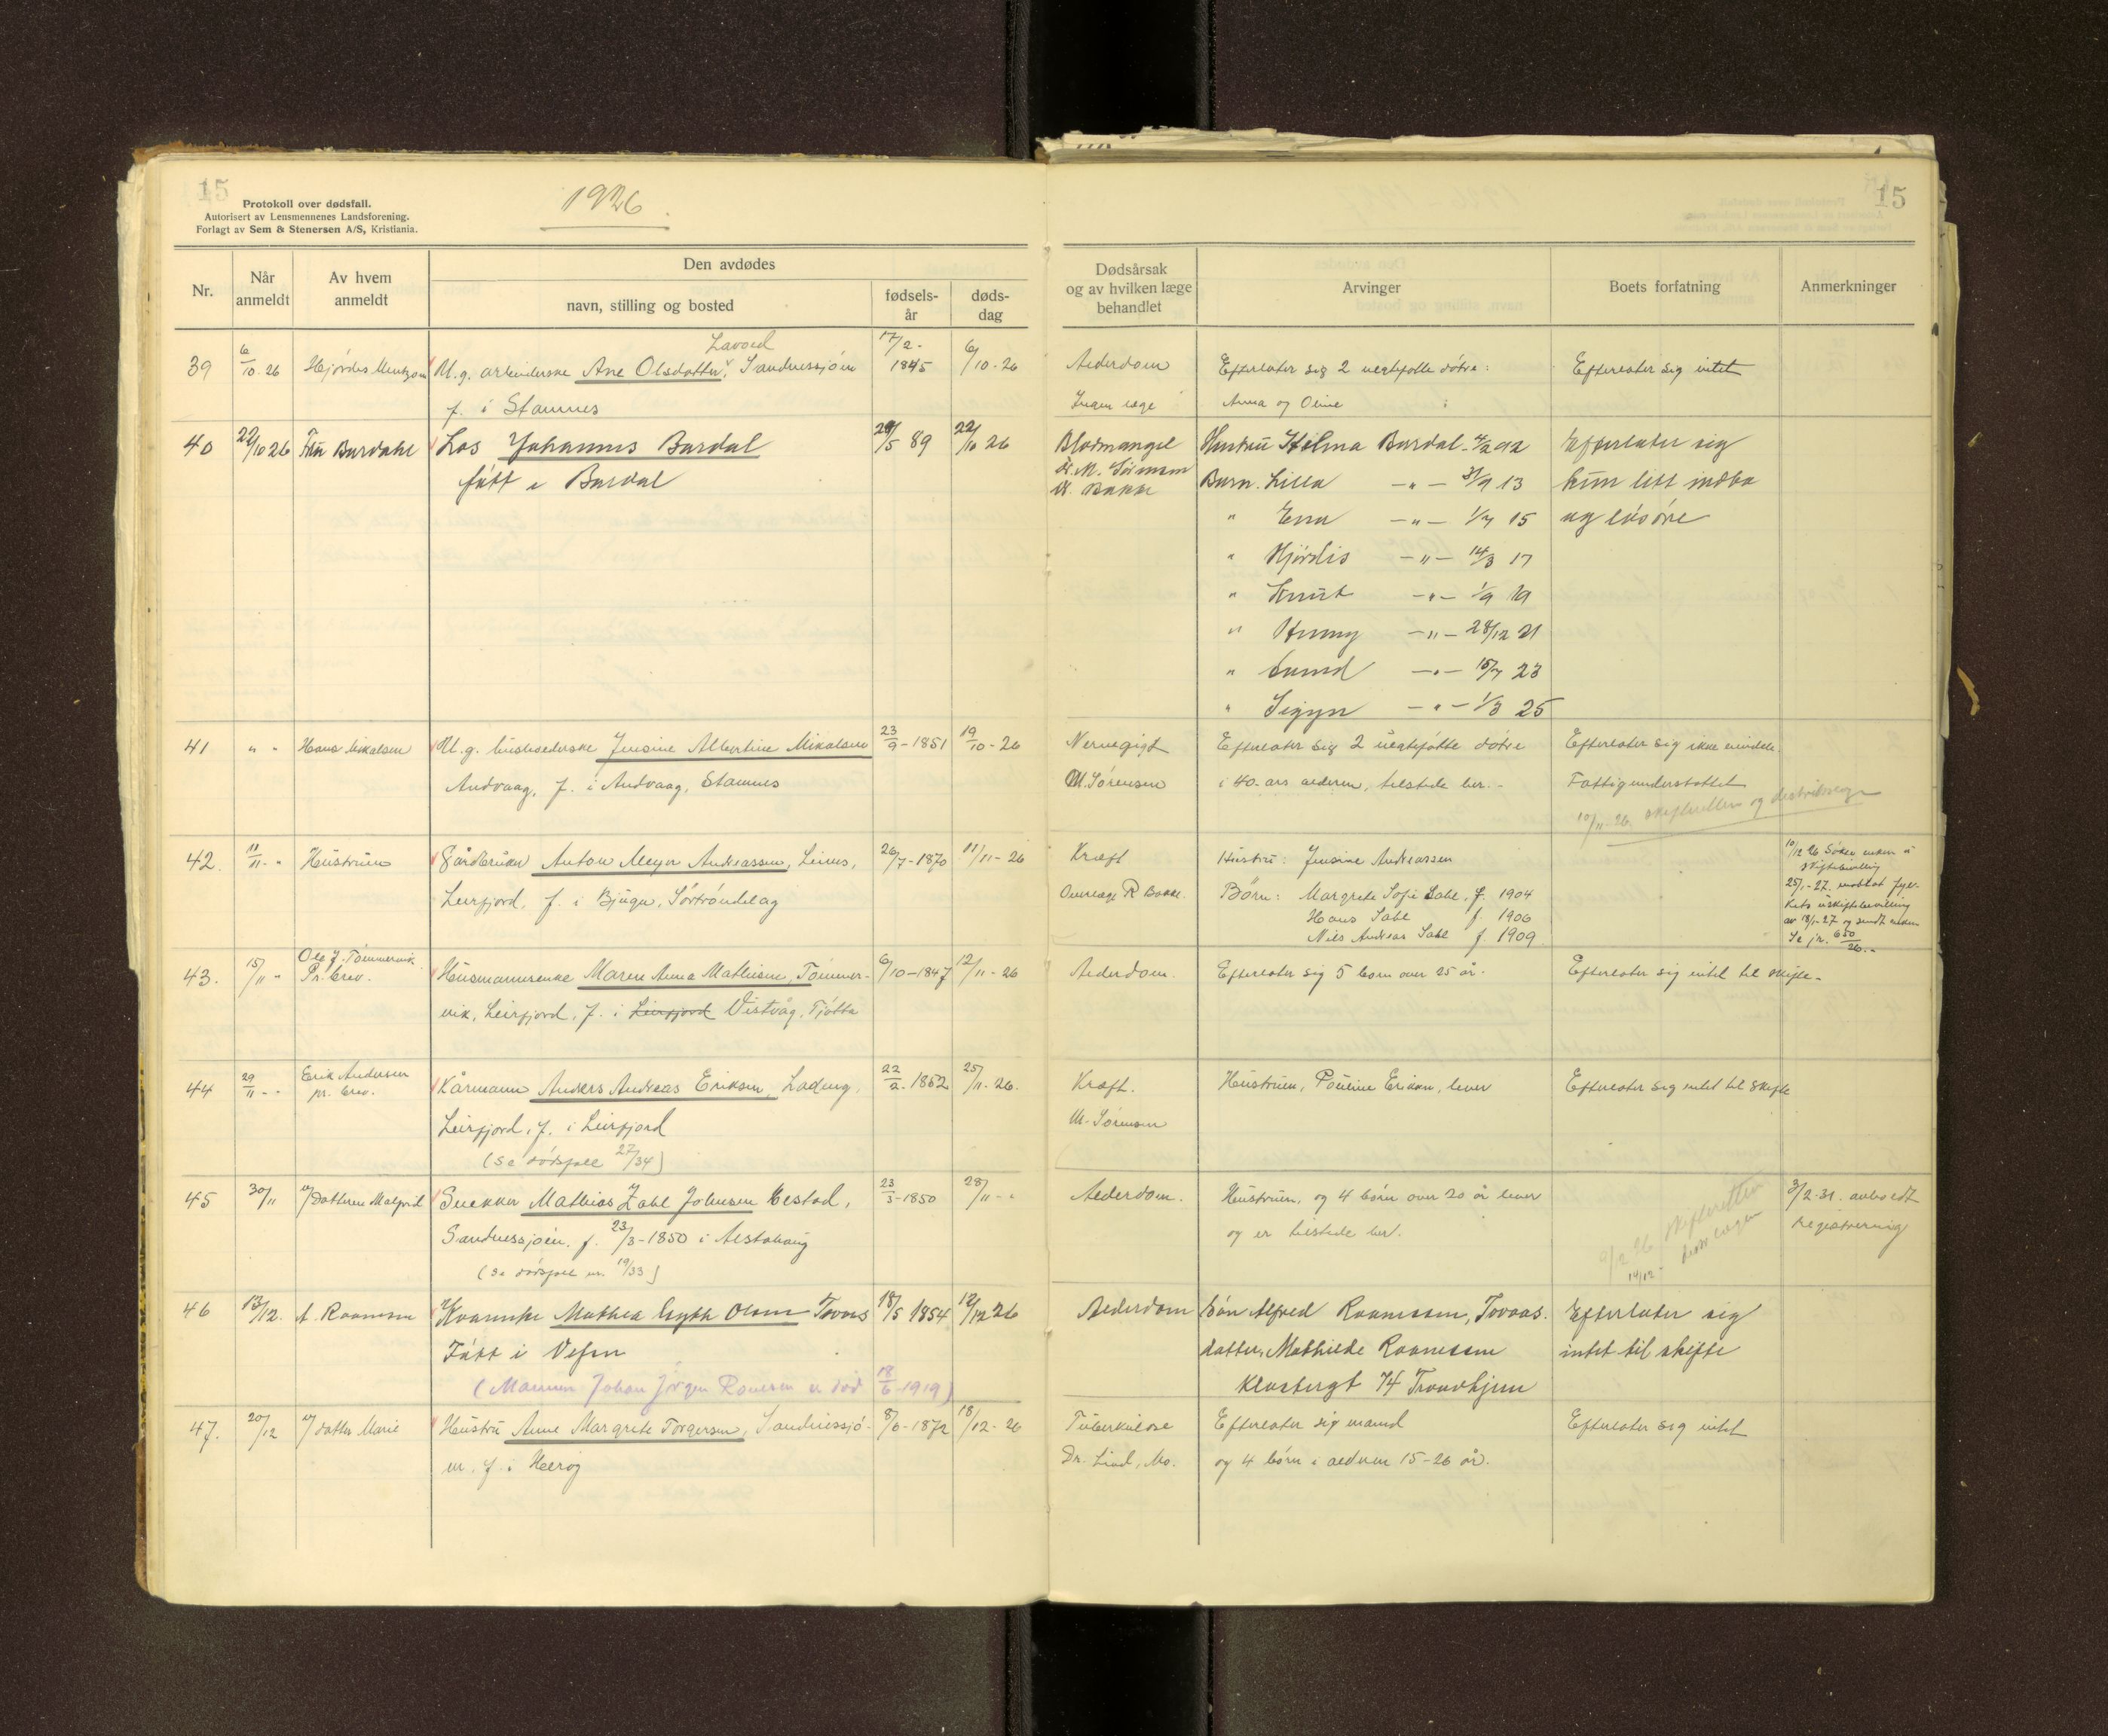 15
Protokoll over dødsfall.
Autorisert av Lensmennenes Landsforening.
Forlagt av Sem & Stenersen A/S, Kristiania.
1926
15
Nr.
Når anmeldt
Av hvem anmeldt
Den avdødes
navn, stilling og bosted
fødsels-år
døds-dag
Dødsårsak og av hvilken læge behandlet
Arvinger
Boets forfatning
Anmerkninger
39 6/10-26 Hjørdis U.g. arbeiderske Ane Olsdatter, Sandnessjøen 17/2-1845 6/10-26 Alderdom Efterlater sig 2 uegtefødte døtre: Efterlater sig intet
f. i Stamnes Ingen læge Anna og Oline
40 22/10 26 Fru Bardahl Los Johannes Bardal 29/5 89 22/10 26 Blodmangel Hustru Hilma Bardal 4/2 92 Efterlater sig
født i Bardal Dr. M. Sørensen Barn Lilla -"- 31/9 13 kun litt indbo
Dr. Bakke
" Erna -"- 1/7 15 og løsøre
" Hjørdis -"- 14/3 17
" Knut -"- 1/9 19
" -"- 28/12 21
" -"- 15/7 23
" Sigyn -"- 1/3 25
41 " " Hans Mikalsen U.g. husholderske Jensine Albertine Mikalsen 23/9-1851 19/10-26 Nervegigt Efterlater sig 2 uegtefødte døtre Efterlater sig ikke eiendele.
Andvaag, f. i Andvaag, Stamnes M. Sørensen i 40-års alderen, tilstede her.- Fattigunderstøttet
10/11-26. skifteretten og
42. 11/11-" Hustruen Gårdbruker Anton Meyer Andreassen, Leines, 26/7-1870 11/11-26 Kræft Hustru: Jensine Andreassen
Leirfjord, f. i Bjugn, Sørtrøndelag Overlæge R Bakke. Børn: Margrete Sofie Dahl, f. 1904
Hans Dahl f. 1906
Nils Andreas Dahl f. 1909
10/12 26 Søker enken
skiftebevilling
25/1-27.
av 18/1-27 og sendt enken
Se jr. 650/26.-
43. 15/11 " Ole J. Tømmervik Pr. brev. Husmannsenke Maren Anna Mathisen, Tømmer- 6/10-1847 12/11-26 Alderdom. Efterlater sig 5 barn over 25 år. Efterlater sig intet til skifte-
vik, Leirfjord, f. i Leirfjord Vistvåg, Tjøtta
44 29/11-" Erik Andersen pr. brev. Kårmann Anders Andreas Eriksen, Leirfjord, f. i Leirfjord 22/2-1852 25/11-26. Kræft. Hustruen, Pouline Eriksen, lever Efterlater sig intet til skifte
M. Sørensen
(Se dødsfall 27/34)
45 30/11 v/ datteren Snekker Mathias Zahl Johnsen, 23/3-1850 28/11-" Alderdom. Hustruen, og 4 børn over 20 år lever
Sandnessjøen. f. 23/3-1850 i Alstahaug og er tilstede her.
(Se dødsfall nr. 19/33)
26 skifteretten
14/12-
3/2-31. avholdt
registrering
46 13/12. A. Roaness Mathea Olsen Tovaas 18/5 1854 12/12 26 Alderdom Søn Alfred Roanessen, Tovaas. Efterlater sig
Født i Vefsn datter, Mathilde Roanessen intet til skifte
Klostergt 74 Trondhjem
(Mannen Johan Jørgen er død 18/6-1919)
47. 20/12 v/ datter Marie Hustru Anne Margrete Torgersen, Sandnessjø- 8/6-1872 18/12-26 Tuberkulose Efterlater sig mand Efterlater sig intet
en, f. i Herøy Dr. Lind, Mo. og 4 børn i alderen 15-26 år.